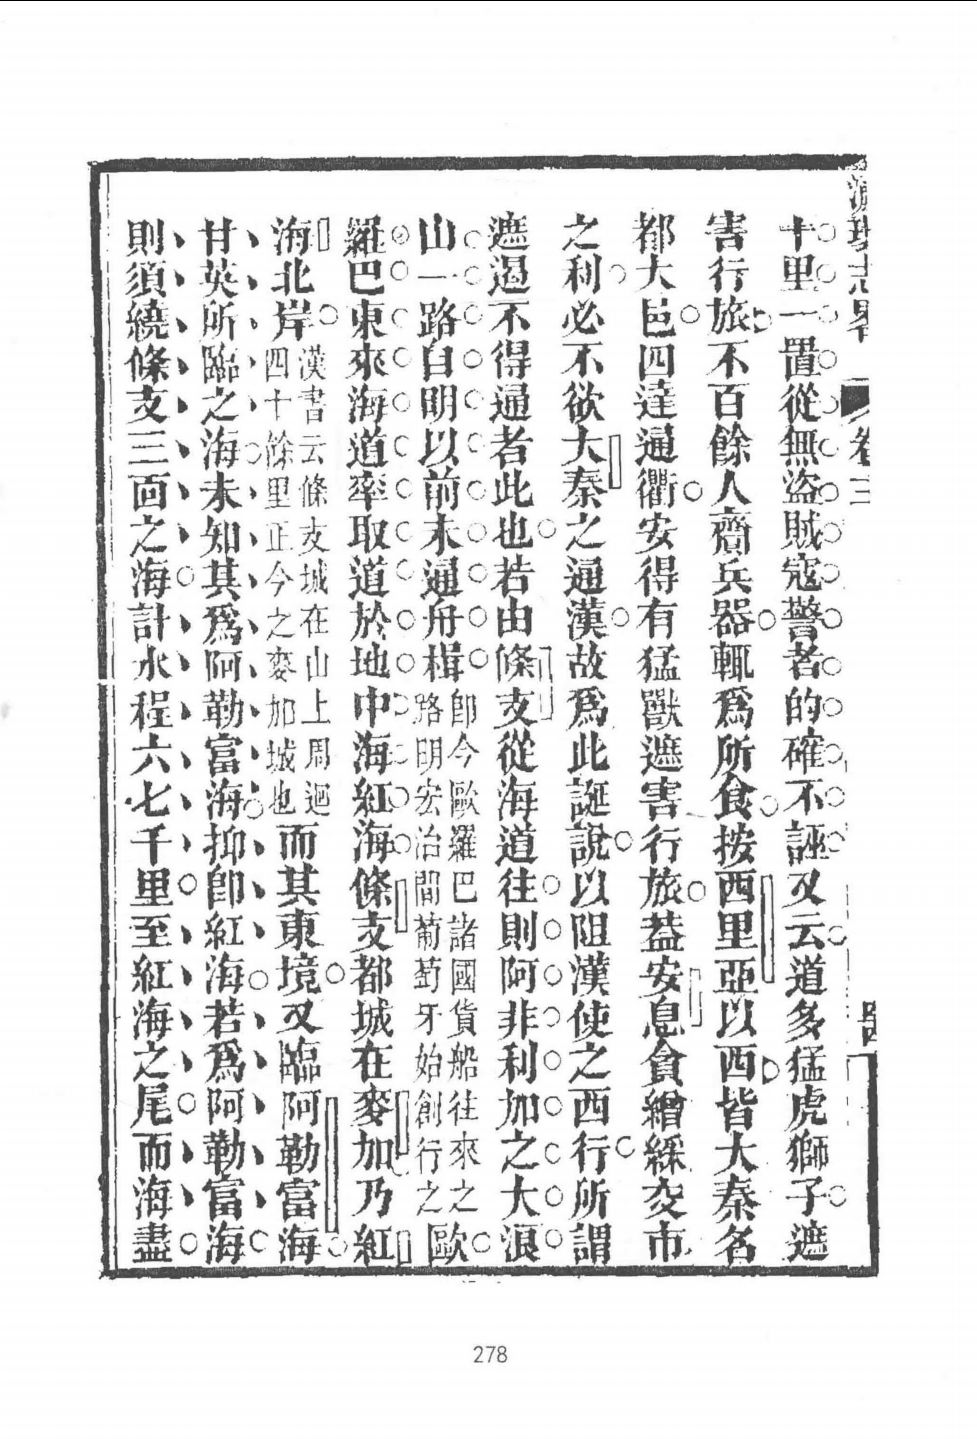 瀛環志畧 卷三
十里一置從無盜賊寇警者的確不誣又云道多猛虎獅子遮
害行旅不百餘人齎兵器輒爲所食按西里亞以西皆大秦名
都大邑四達通衢安得有猛獸遮害行旅蓋安息貪繒綵交市
之利必不欲大秦之通漢故爲此誕說以阻漢使之西行所謂
遮遏不得通者此也若由條支從海道往則阿非利加之大浪
山一路自明以前未通舟楫卽今歐羅巴諸國貨船往來之路明宏治間葡萄牙始創行之歐
羅巴東來海道率取道於地中海紅海條支都城在麥加乃紅
海北岸漢書云條支城在山上周迴四十餘里正今之麥加城也而其東境又臨阿勒富海
甘英所臨之海未知其爲阿勒富海抑卽紅海若爲阿勒富海
則須繞條支三面之海計水程六七千里至紅海之尾而海盡
278